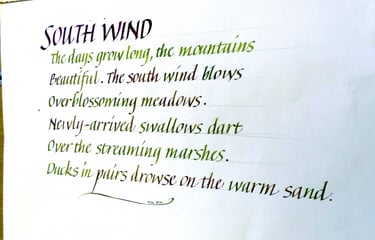 SOUTH WIND
The days grow long, the mountains
Beautiful. The south wind blows
Over blossoming meadows.
Newly-arrived swallows dart
Over the streaming marshes.
Ducks in pairs drowse on the warm sand.